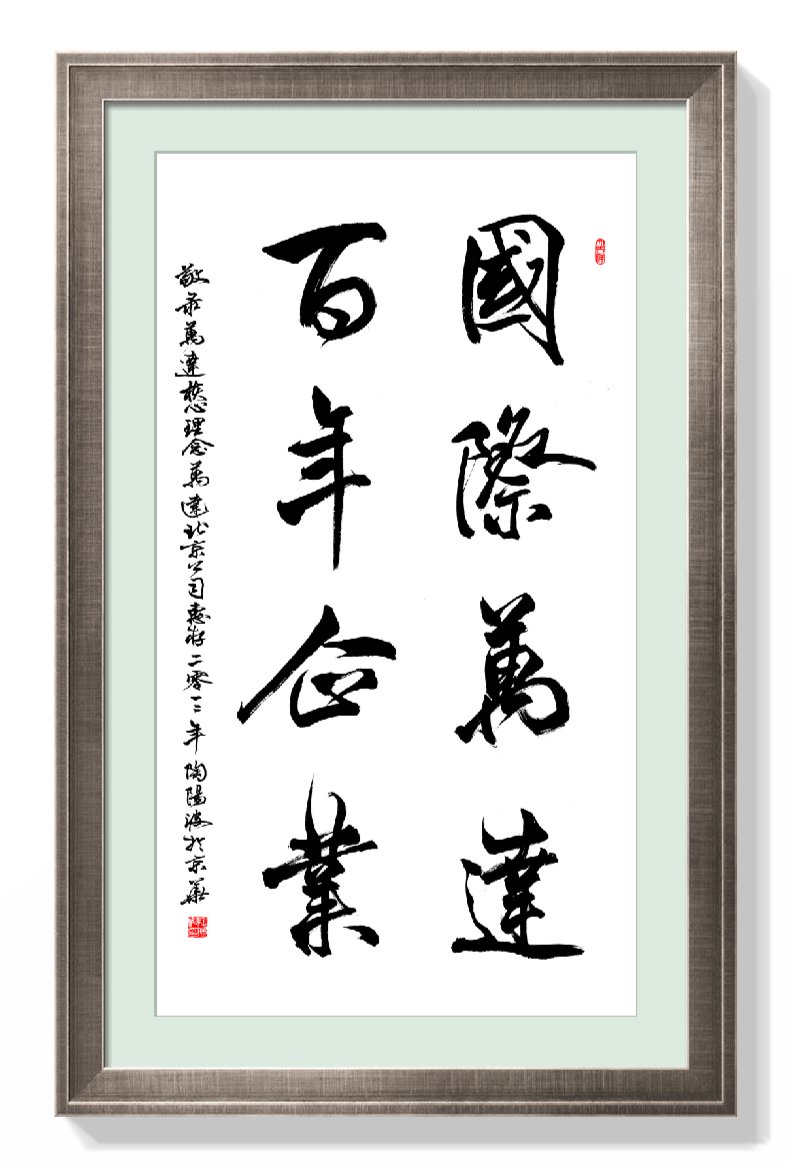 國際萬達
百年企業
敬录萬達核心理念萬達北京公司惠存二零一二年陶陽波於京華